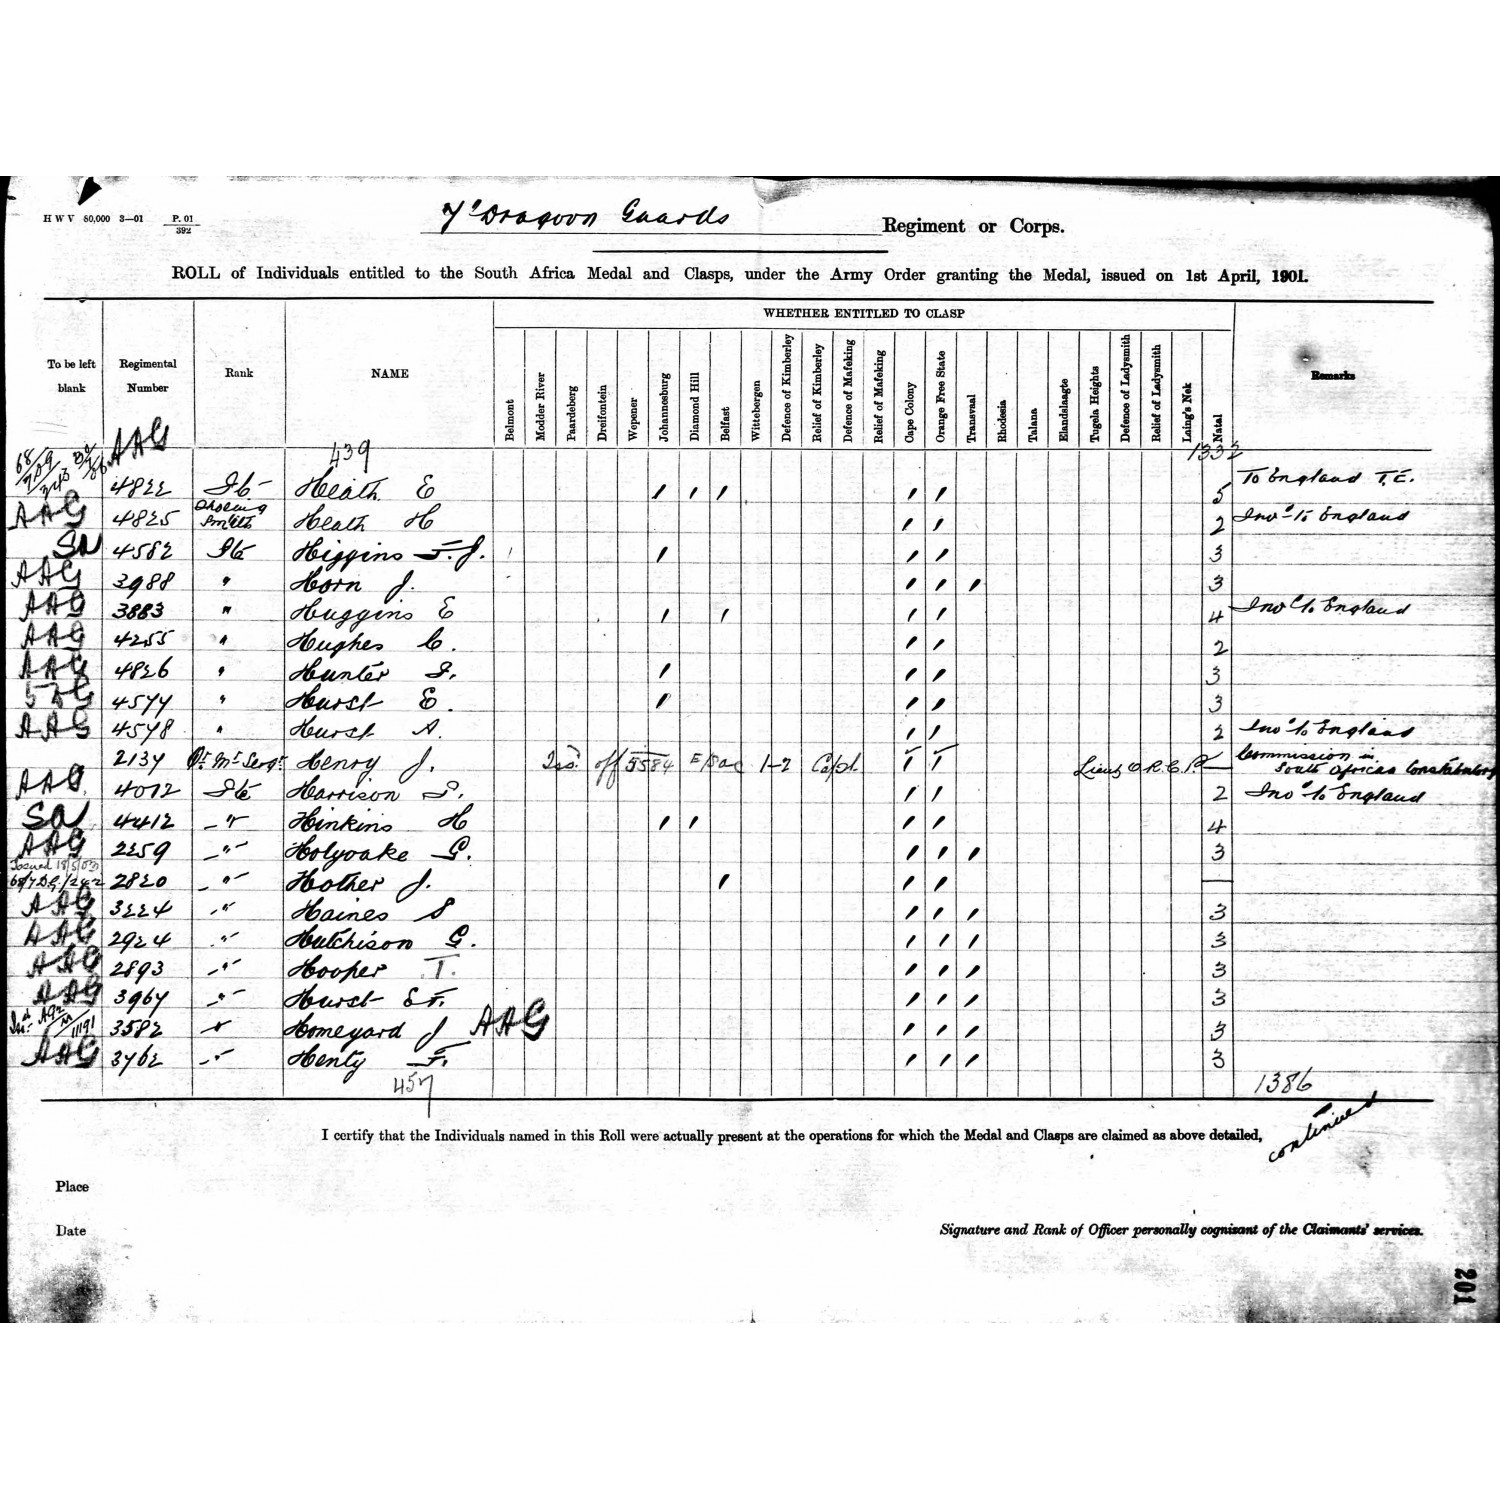 H W V 80,000 3—01 P. 01
392
7' Dragoon Guards Regiment or Corps.
ROLL of Individuals entitled to the South Africa Medal and Clasps, under the Army Order granting the Medal, issued on 1st April, 1901.
WHETHER ENTITLED TO CLASP
To be left blank
Regimental Number
Rank
NAME
Belmont
Modder River
Paardeberg
Dreifontein
Wepener
Johannesburg
Diamond Hill
Belfast
Wittebergen
Defence of Kimberley
Relief of Kimberley
Defence of Mafeking
Relief of Mafeking
Cape Colony
Orange Free State
Transvaal
Rhodesia
Talana
Elandslaagte
Tugela Heights
Defence of Ladysmith
Relief of Ladysmith
Laing's Nek
Natal
Remarks
AAG 439 1332
4822 Pte Heath E / / / / / 5 To England T.E.
AAG 4825 Shoeing Smith Heath H / / 2 Invd to England
SA 4582 Pte Higgins F. J. / / / 3
AAG 3988 " Horn J. / / / 3
AAG 3883 " Huggins E / / / / 4 Invd to England
AAG 4255 " Hughes C. / / 2
AAG 4826 " Hunter J. / / / 3
5DG 4577 " Hurst E. / / / 3
AAG 4578 " Hurst A. / / 2 Invd to England
2137 Qr Mr Sergt Henry J. Issd off 5584 1-2 / / Lieut O.R.C. — Commission in South African Constabulary
AAG 4072 Pte Harrison J. / / 2 Invd to England
SA 4412 " Hinkins H / / / / 4
AAG 2259 " Holyoake G. / / / 3
Issued 18/5/03
68/7DG/242 2820 " Hother J. / / / —
AAG 3224 " Haines S / / / 3
AAG 2924 " Hutchison G. / / / 3
AAG 2893 " Hooper T. / / / 3
AAG 3967 " Hurst E F. / / / 3
3582 " Homeyard J AAG / / / 3
AAG 3762 " Henty F. / / / 3
457 1386
continued
I certify that the Individuals named in this Roll were actually present at the operations for which the Medal and Clasps are claimed as above detailed,
Place
Date
Signature and Rank of Officer personally cognisant of the Claimants' services.
201